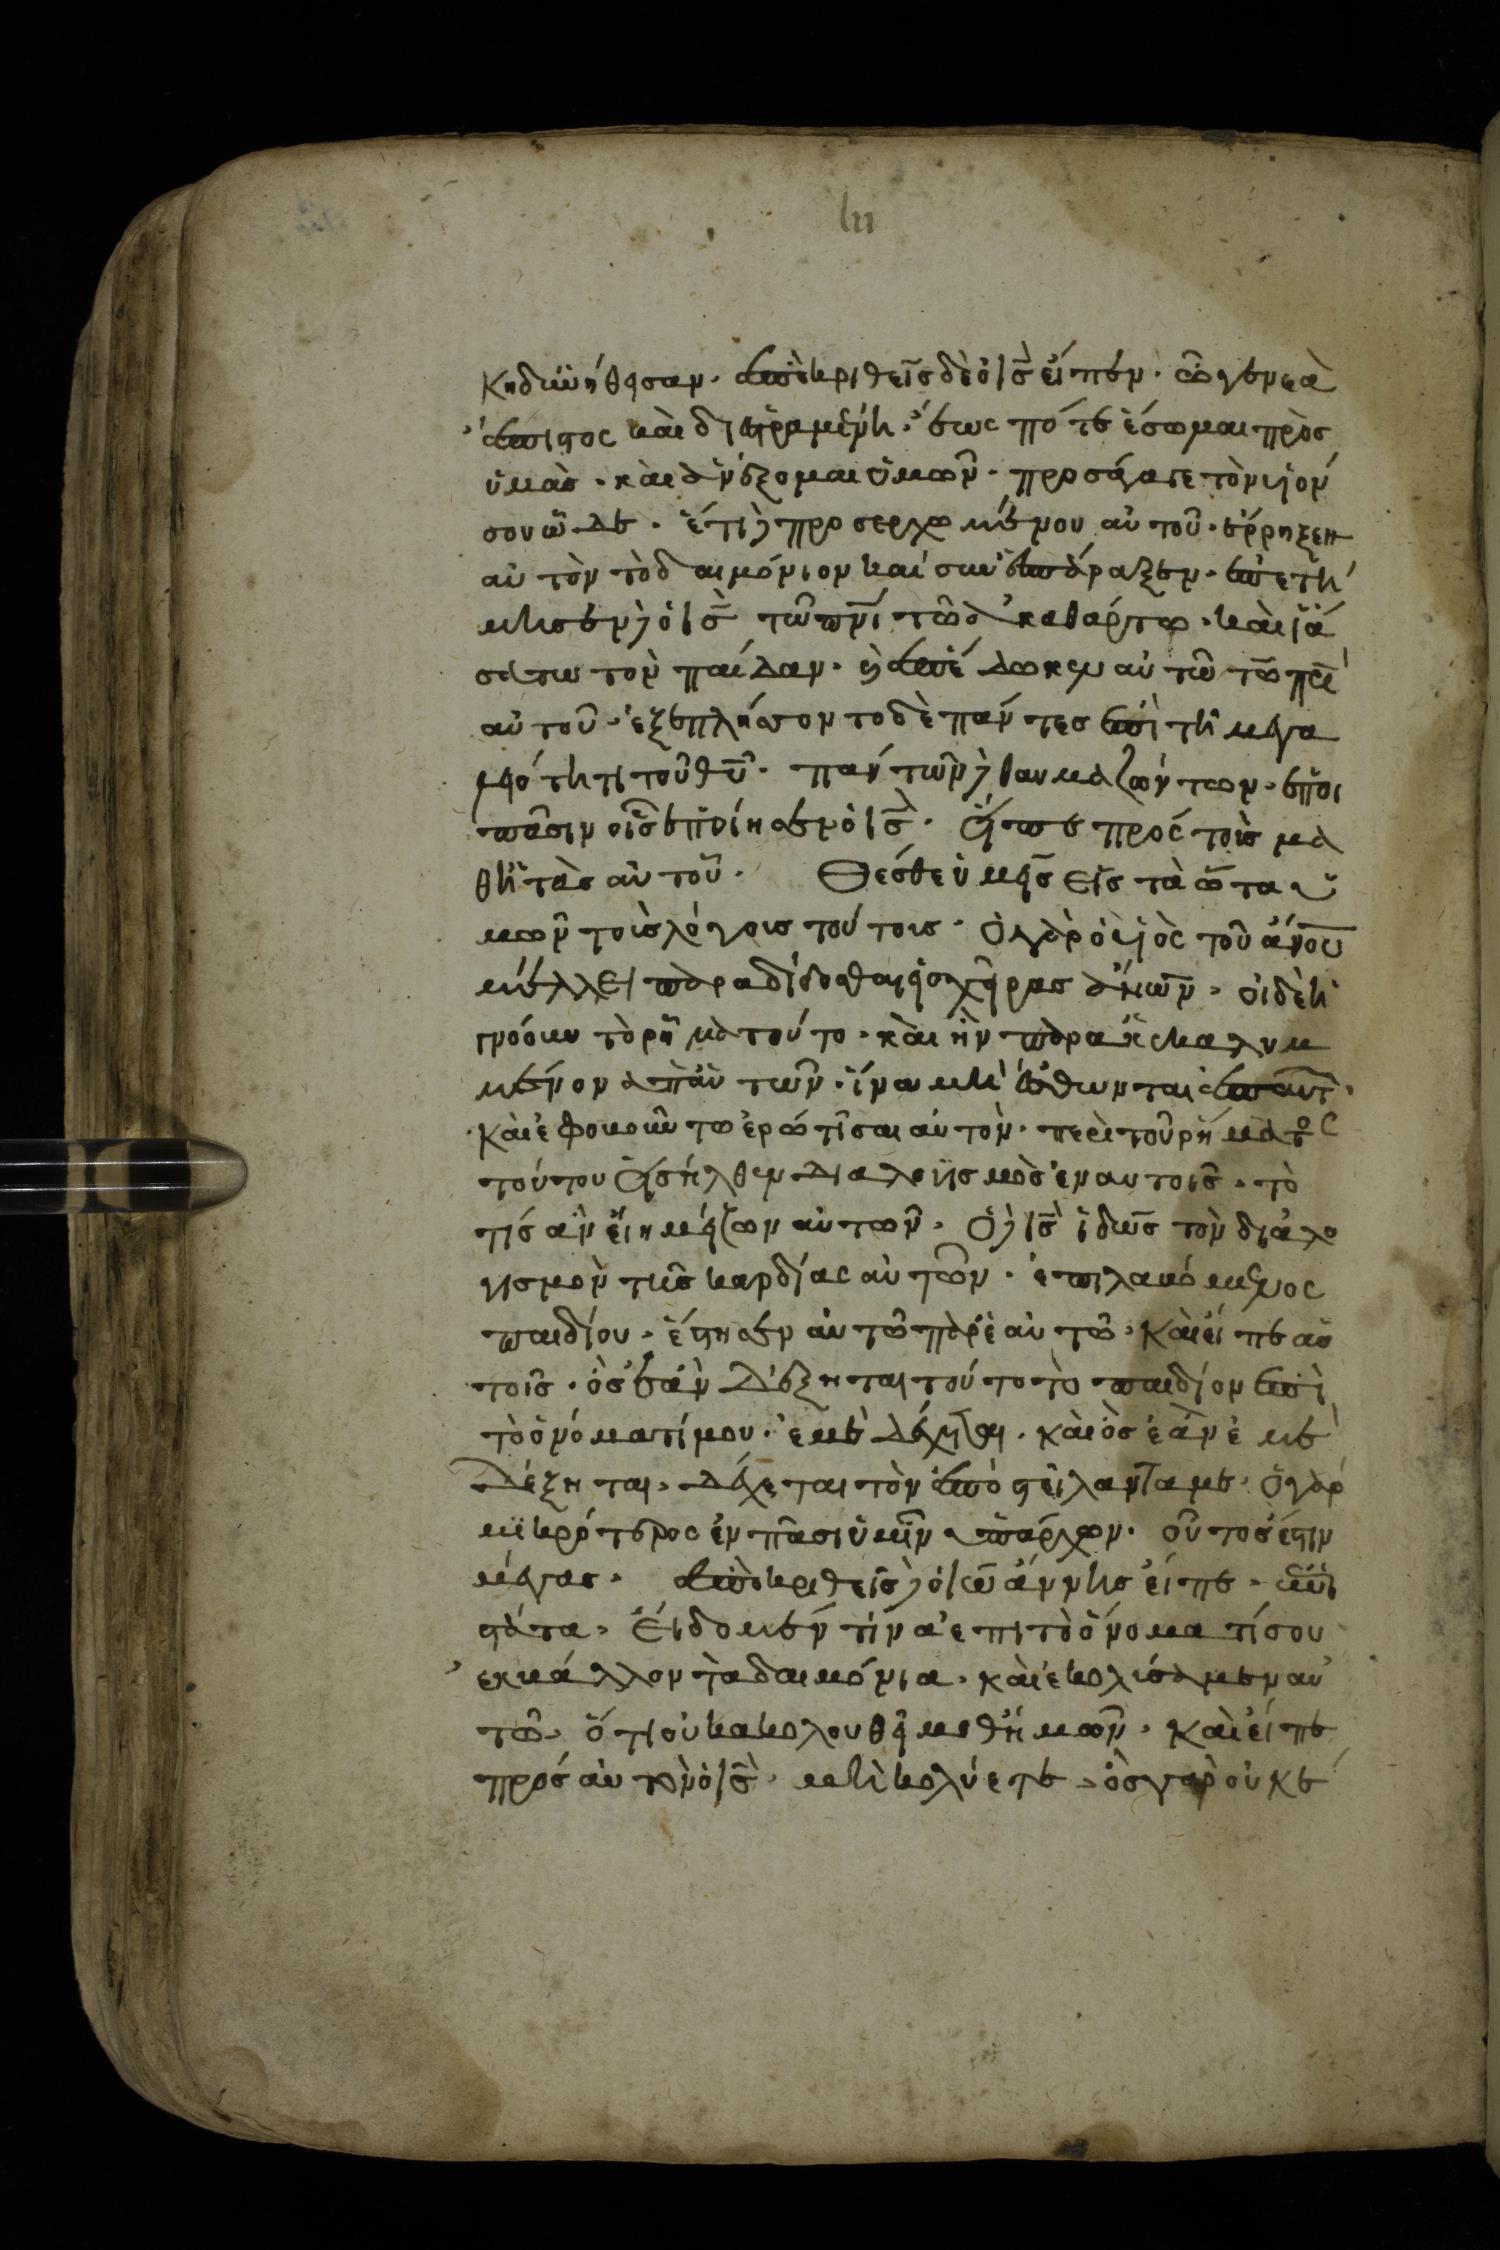 κηδυνήθησαν. ἀποκριθεῖς δὲ ὁ ις εἶπεν. ὦ γενεὰ
ἄπιστος καὶ διεστραμένη. ἕως πότε ἔσωμαι πρὸς
ὑμᾶς. καὶ ἀνέξομαι ὑμῶν. προσάγαγε τὸν υἱόν
σου ὧδε. ἔτι δὲ προσερχωμένου αὐτοῦ. ἔρρηξεν
αὐτὸν τὸ δαιμόνιον καὶ συνεσπάραξεν. ἐπετή
μησεν δὲ ὁ ις τῶ πνι τῶ ἀκαθάρτω. καὶ ϊά
σατω τὸν παίδαν. κ ἀπέδωκεν αὐτῶ τῶ πρι
αὐτοῦ. ἐξεπλήσοντο δὲ πάντες ἐπὶ τῆ μεγα
λειότητι τοῦ θυ. πάντων δὲ θαυμαζώντων. ἐπὶ
πᾶσιν οἷς ἐποίησεν ὁ ις. εἶπε πρός τοὶς μα
θητὰς αὐτοῦ. Θέσθε ὑμεῖς εἰς τὰ ὦτα ὑ
μῶν τοὶς λόγοις τούτοις. ὁ γὰρ ὑιὸς τοῦ ἀνου
μέλλει παραδίδοσθαι εἰς χεῖρας ἀνων. οἱ δὲ ἠ
γνόουν τὸ ρῆμα τούτο. καὶ ἦν παρακεκαλυμ
μένον ἀπ αὐτῶν. ἵνα μὴ αἴσθωνται αὐτὸ.
καὶ ἐφοβοῦντω ἐρώτῖσαι αὐτὸν. περὶ τοῦ ρήματος
τούτου εἰσήλθεν διαλογισμὸς ἐν αυτοῖς. τὸ
τίς ἂν εἴη μείζων αὐτῶν. ὁ δὲ ις ἰδὼς τὸν διαλο
γισμὸν τῆς καρδίας αὐτῶν. ἐπιλαβόμενος
παιδίου. ἔστησεν αὐτῶ παρ ἐαὐτῶ. καὶ εἶπε αὐ
τοῖς. ὃς ἐὰν δέξηται τούτο τὸ παιδίον ἐπὶ
τὸ ὀνόματί μου. ἐμὲ δέχεται. καὶ ὃς ἐὰν ἐμὲ
δέξηται. δέχεται τὸν ἀποστείλαντα με. ὁ γὰρ
μικρότερος ἐν πᾶσι ὑμῖν ὑπάρχων. οὗτος ἐστιν
μέγας. ἀποκριθεῖς δὲ ὁ ιωάννης εἶπε. ἐπι
στάτα. εἴδομεν τίνα ἐπι τὸ ὀνοματί σου
ἐκβάλλον τὰ δαιμόνια. καὶ ἐκολίσαμεν αὐ
τῶ. ὅτι οὐκ ἀκολουθῆ μεθ ἡμῶν. καὶ εἶπε
πρὸς αὐτὸν ὁ ις. μὴ κολύετε. ὃς γαρ οὐκ ἐ